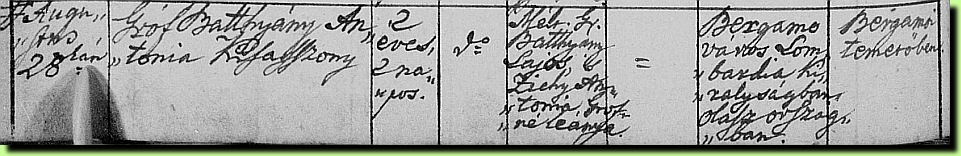 Augu„
„stus
28 dán
Gróf Batthyány An„
„tonia Kisasszony
2
éves,
2 na„
„pos.
do
Mélt. Gr.
Batthyány
Lajos, és
Zichy An„
„tonia Grof„
„né leánya.
=
Bergamo
város Lom„
„bardia ki„
„ralyságban,
olasz ország„
„ban.
Bergamoi
temetőben.